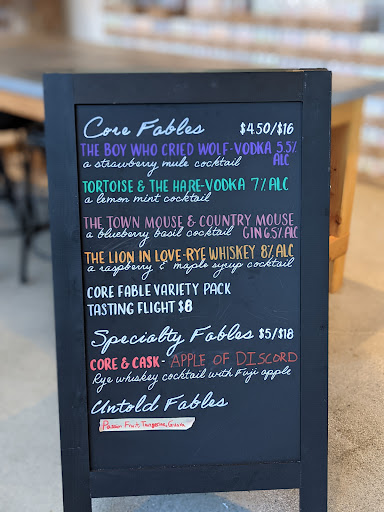 Core Fables $4.50/$16
THE BOY WHO CRIED WOLF-VODKA 5.5% ALC
a strawberry mule cocktail
TORTOISE & THE HARE-VODKA 7% ALC
a lemon mint cocktail
THE TOWN MOUSE & COUNTRY MOUSE
a blueberry basil cocktail GIN 6.5% ALC
THE LION IN LOVE-RYE WHISKEY 8% ALC
a raspberry & maple syrup cocktail
CORE FABLE VARIETY PACK
TASTING FLIGHT $8
Specialty Fables $5/$18
CORE & CASK- APPLE OF DISCORD
Rye whiskey cocktail with Fuji apple
Untold Fables
Passion Fruit, Tangerine, Guava